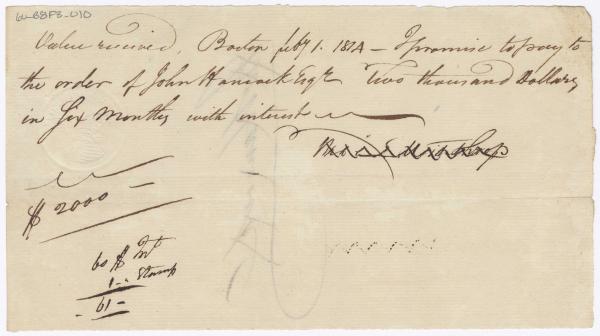 60-88F8-010
Value received, Boston feby 1. 1814 – I promise to pay to
the order of John Hancock Esqr Two thousand Dollars,
in Six Months, with interest
$ 2000 –
60 $ Int
1 – Stamp
61 –